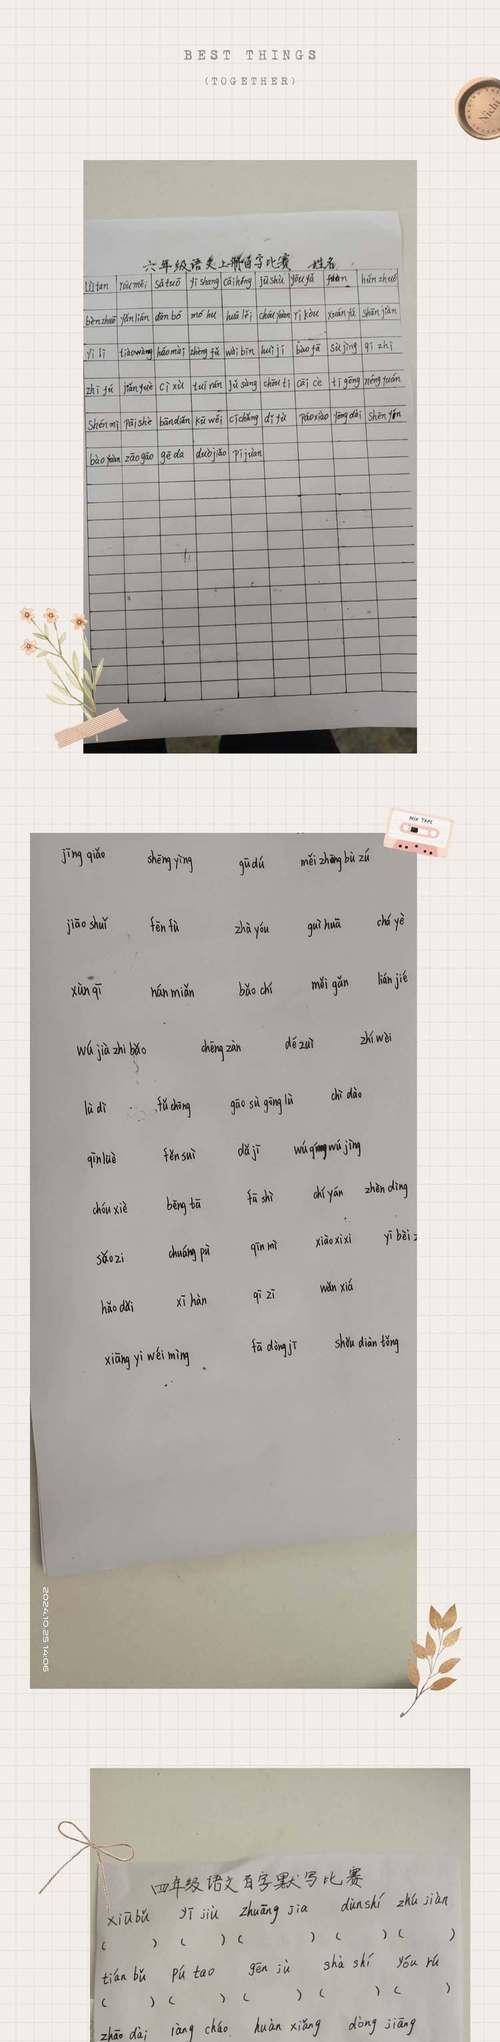 BEST THINGS
(TOGETHER)
Nichi
六年级语文上册百字比赛 姓名
lǜ tan róu měi sǎ tuō yī shang cǎi hóng jū shù yōu yǎ hún zhuó
bèn zhuō yǎn lián dàn bó mó hu huā lěi cháo yuán rì kòu xuán yá shān jiàn
yì lì tiào wàng háo mài zhèng fǔ wài bīn huì jí bào fā sù jìng qí zhì
zhī fú jiǎn yuè cí xù tuī rán jǔ sàng chōu tì cāi cè tí gōng nóng yuán
shén mì pāi shè bān diǎn kū wěi cí chǎng dǐ yù páo xiào yōng dài shēn yín
bào yuàn zāo gāo gē da duò jiǎo pí juàn
MIX TAPE
jīng qiǎo shēng yìng gū dú měi zhōng bù zú
jiāo shuǐ fēn fù zhà yóu guì huā chá yè
xùn qī nán miǎn bǎo chí měi gǎn lián jié
wú jià zhī bǎo chēng zàn dé zuì zhí wèi
lù dì fǔ chōng gāo sù gōng lù chí dào
qīn lüè fěn suì dǎ jī wú qióng wú jìng
chóu xiè bēng tā fā shì chí yán zhèn dìng
sǎo zi chuáng pù qīn mì xiào xī xī yī bèi z
hǎo dǎi xī hàn qī zī wǎn xiá
xiāng yī wéi mìng fā dòng jī shǒu diàn tǒng
2024.10.25 14:06
四年级语文百字默写比赛
xiū bǔ yī jiù zhuāng jia dùn shí zhú jiàn
( ) ( ) ( ) ( ) ( )
tián bǔ pú tao gēn jù shà shí yóu rú
( ) ( ) ( ) ( ) ( )
zhāo dài làng cháo huàn xiǎng dòng jiāng